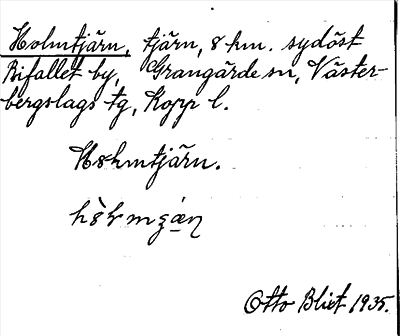 Holmtjärn, tjärn, 8 km. sydöst
Bifallet by, Grangärde sn, Väster-
bergslags tg, Kopp l.
Holmtjärn.
Otto Blixt 1935.